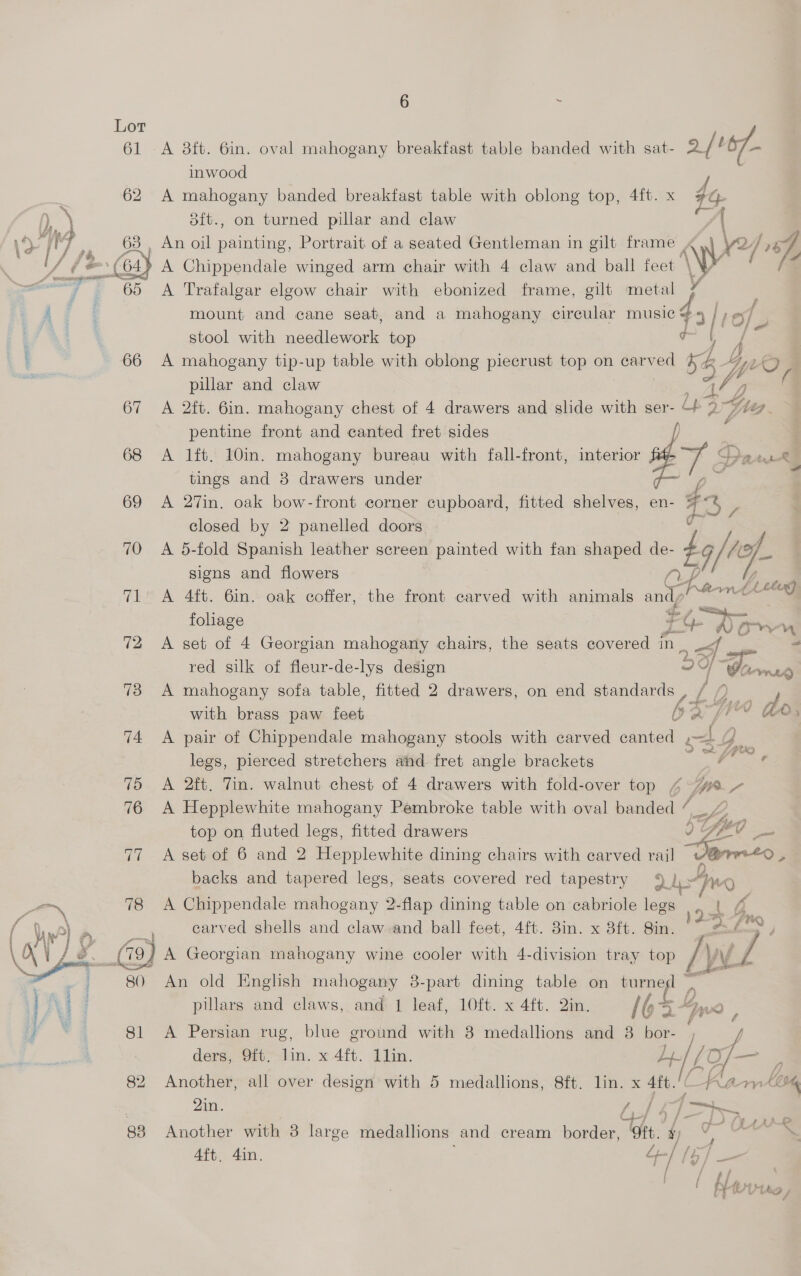 6
Lot
61 A 3ft. 6in. oval mahogany breakfast table banded with sat-
inwood
62 A mahogany banded breakfast table with oblong top, 4ft. x
3ft., on turned pillar and claw
63 An oil painting, Portrait of a seated Gentleman in gilt frame
64 A Chippendale winged arm chair with 4 claw and ball feet
65 A Trafalgar elgow chair with ebonized frame, gilt metal
mount and cane seat, and a mahogany circular music
stool with needlework top
66 A mahogany tip-up table with oblong piecrust top on carved
pillar and claw
67 A 2ft. 6in. mahogany chest of 4 drawers and slide with ser-
pentine front and canted fret sides
68 A 1ft. 10in. mahogany bureau with fall-front, interior fit-
tings and 3 drawers under
69 A 27in. oak bow-front corner cupboard, fitted shelves, en-
closed by 2 panelled doors
70 A 5-fold Spanish leather screen painted with fan shaped de-
signs and flowers
71 A 4ft. 6in. oak coffer, the front carved with animals and
foliage
72 A set of 4 Georgian mahogany chairs, the seats covered in
red silk of fleur-de-lys design
73 A mahogany sofa table, fitted 2 drawers, on end standards
with brass paw feet
74 A pair of Chippendale mahogany stools with carved canted
legs, pierced stretchers and fret angle brackets
75 A 2ft. 7in. walnut chest of 4 drawers with fold-over top
76 A Hepplewhite mahogany Pembroke table with oval banded
top on fluted legs, fitted drawers
77 A set of 6 and 2 Hepplewhite dining chairs with carved rail
backs and tapered legs, seats covered red tapestry
78 A Chippendale mahogany 2-flap dining table on cabriole legs
carved shells and claw and ball feet, 4ft. 3in. x 3ft. 8in.
79 A Georgian mahogany wine cooler with 4-division tray top
80 An old English mahogany 3-part dining table on turned
pillars and claws, and 1 leaf, 10ft. x 4ft. 2in.
81 A Persian rug, blue ground with 3 medallions and 3 bor-
ders, 9ft. 1in. x 4ft. 11in.
82 Another, all over design with 5 medallions, 8ft. 1in. x 4ft.
2in.
83 Another with 3 large medallions and cream border, 9ft. x
4ft. 4in.